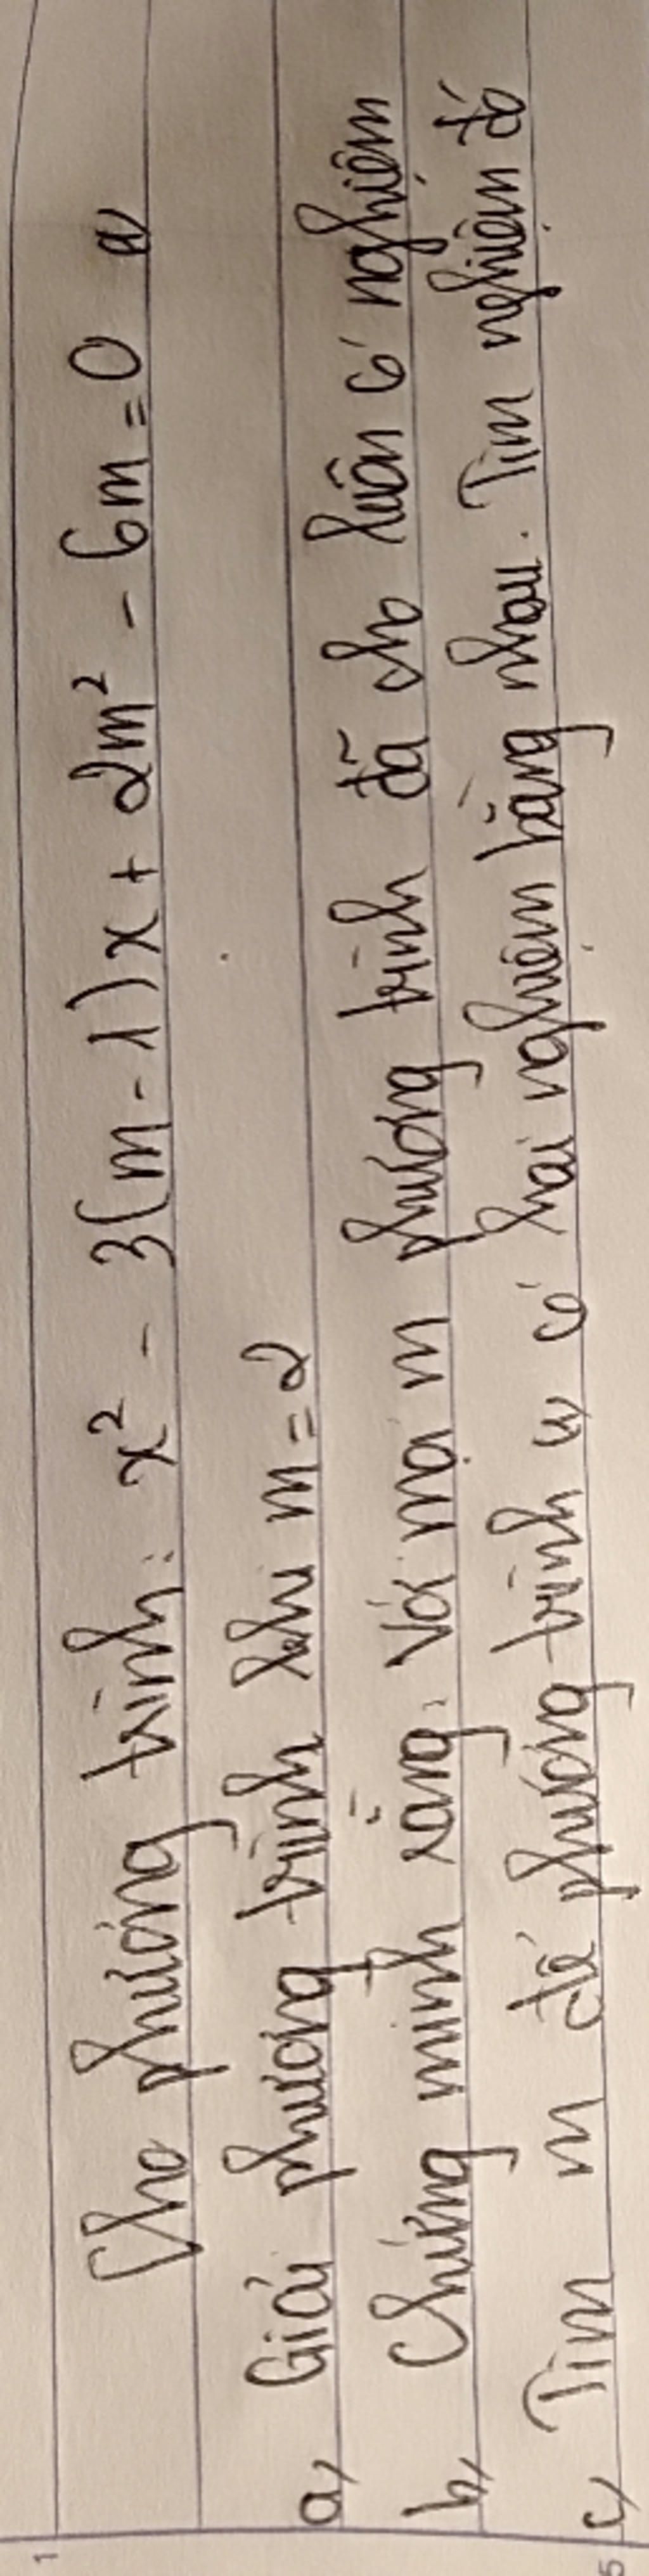 Cho phương trình: x² - 3(m-1)x + 2m² - 6m = 0
a, Giải phương trình khi m = 2
b, Chứng minh rằng: Với mọi m phương trình đã cho luôn có nghiệm
c, Tìm m để phương trình có hai nghiệm bằng nhau. Tìm nghiệm đó
1
5